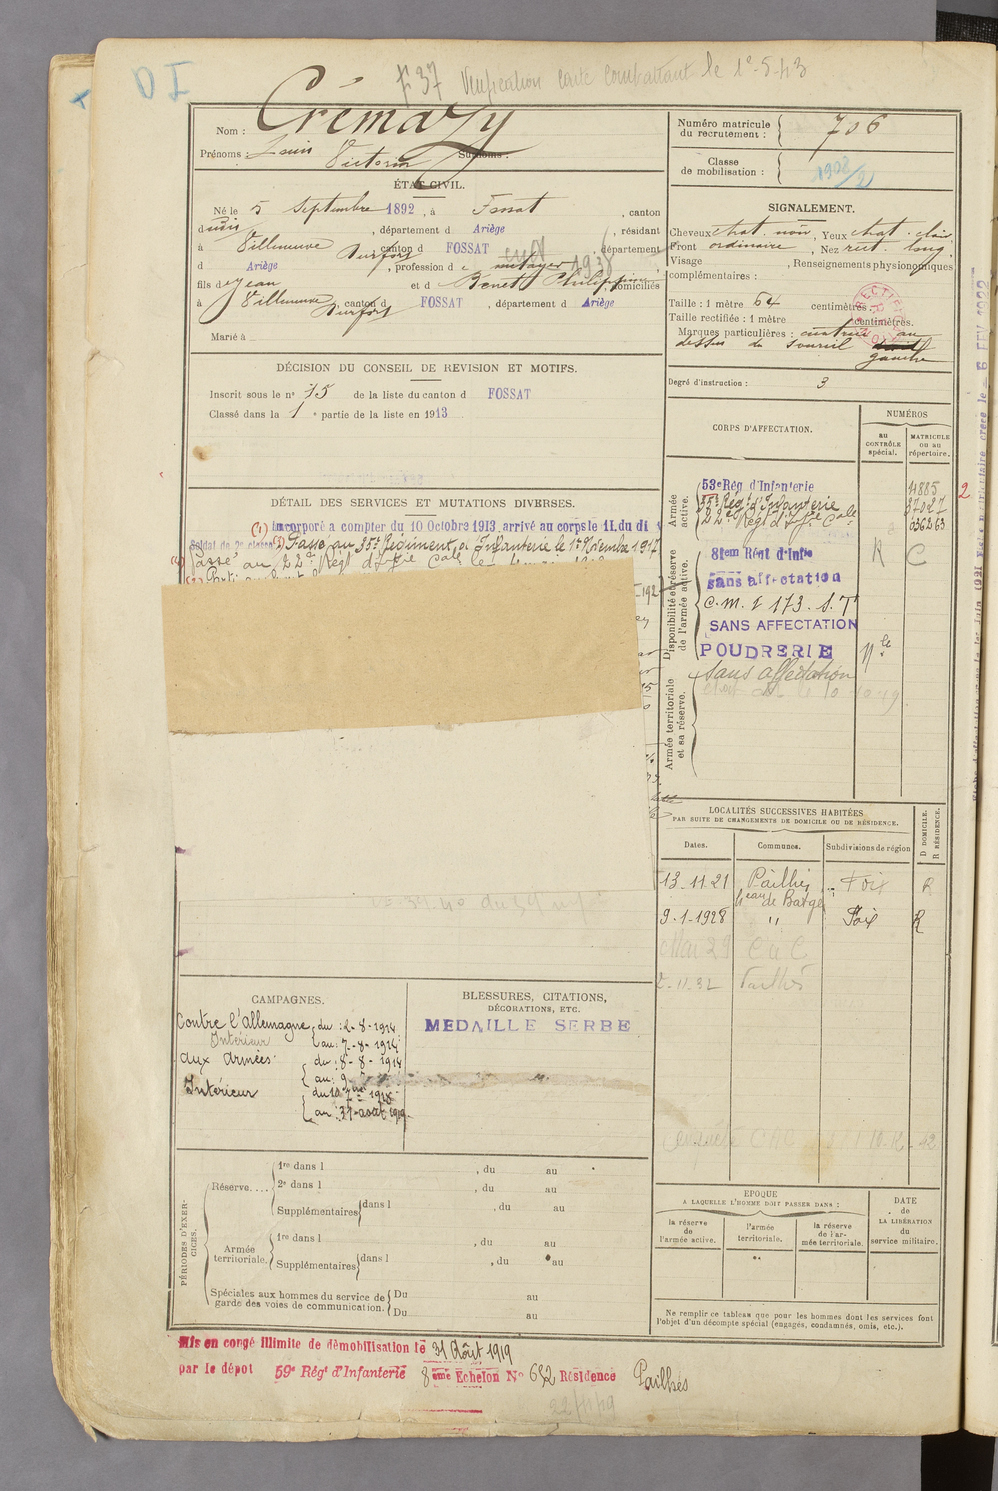 D I
Vérification carte combattant le 1-5-43
Nom : Crémazy
Prénoms : Louis Victorin Surnoms :
ÉTAT CIVIL.
Né le 5 Septembre 1892, à Fossat, canton
dudis, département d Ariège, résidant
à Villeneuve Durfort, canton d FOSSAT, département
d Ariège, profession de métayer 1938
fils de Jean et de Benet Philippine, domiciliés
à Villeneuve Durfort, canton d FOSSAT, département d Ariège
Marié à
DÉCISION DU CONSEIL DE REVISION ET MOTIFS.
Inscrit sous le n° 15 de la liste du canton d FOSSAT
Classé dans la 1e partie de la liste en 1913
DÉTAIL DES SERVICES ET MUTATIONS DIVERSES.
(1) Incorporé a compter du 10 Octobre 1913, arrivé au corps le 11. du dit
Soldat de 2e classe Passé au 35e Régiment d'Infanterie le 1er Novembre 1917
Passé au 22e Régt d'Infie Cale le
CAMPAGNES.
Contre l'allemagne
Intérieur
du : 2-8-1914
au : 7-8-1914
aux armées
du : 8-8-1914
au : 9
Intérieur
du 10
au : 31 août 1919
BLESSURES, CITATIONS,
DÉCORATIONS, ETC.
MEDAILLE SERBE
PÉRIODES D'EXERCICES.
Réserve....
1re dans l , du au
2e dans l , du au
Supplémentaires dans l , du au
Armée territoriale.
1re dans l , du au
Supplémentaires dans l , du au
Spéciales aux hommes du service de garde des voies de communication.
Du au
Du au
Mis en congé illimité de démobilisation le 31 Août 1919
par le dépot 59e Régt d'Infanterie 8ème Echelon N° 652 Résidence Pailhès
Numéro matricule
du recrutement : 706
Classe
de mobilisation : 1908/2
SIGNALEMENT.
Cheveux chat. noir, Yeux chat. clair
Front ordinaire, Nez rect. long
Visage , Renseignements physionomiques
complémentaires :
Taille : 1 mètre 64 centimètres.
Taille rectifiée : 1 mètre centimètres.
Marques particulières : cicatrice au
dessus du sourcil
gauche
Degré d'instruction : 3
CORPS D'AFFECTATION.
NUMÉROS
au
CONTRÔLE
spécial.
MATRICULE
OU AU
répertoire.
Armée
active.
53e Rég d'Infanterie 4885
35e Régt d'Infanterie 37027
22e Régt d'Infie Cale 036263
Disponibilité et réserve
de l'armée active.
81em Rént d'Infie
sans affectation
C.M. I 173. S.T
SANS AFFECTATION
POUDRERIE
Armée territoriale
et sa réserve.
sans affectation
LOCALITÉS SUCCESSIVES HABITÉES
PAR SUITE DE CHANGEMENTS DE DOMICILE OU DE RÉSIDENCE.
D DOMICILE.
R RÉSIDENCE.
Dates. Communes. Subdivisions de région
13.11.21 Pailhès Foix R
9-1-1928 " Foix R
Mai 29
2-11-32 Pailhès
ÉPOQUE
A LAQUELLE L'HOMME DOIT PASSER DANS :
la réserve
de
l'armée active.
l'armée
territoriale.
la réserve
de l'ar-
mée territoriale.
DATE
de
LA LIBÉRATION
du
service militaire.
Ne remplir ce tableau que pour les hommes dont les services font
l'objet d'un décompte spécial (engagés, condamnés, omis, etc.).